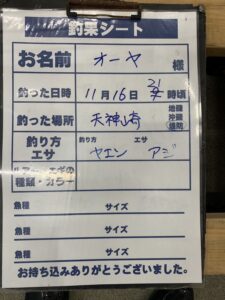 釣果シート
お名前 オーヤ 様
釣った日時 11月16日 21 時頃
釣った場所 天神崎 地磯 沖磯 堤防
釣り方 エサ 釣り方 ヤエン エサ アジ
ルアー・エギの種類・カラー
魚種 サイズ
魚種 サイズ
魚種 サイズ
お持ち込みありがとうございました。